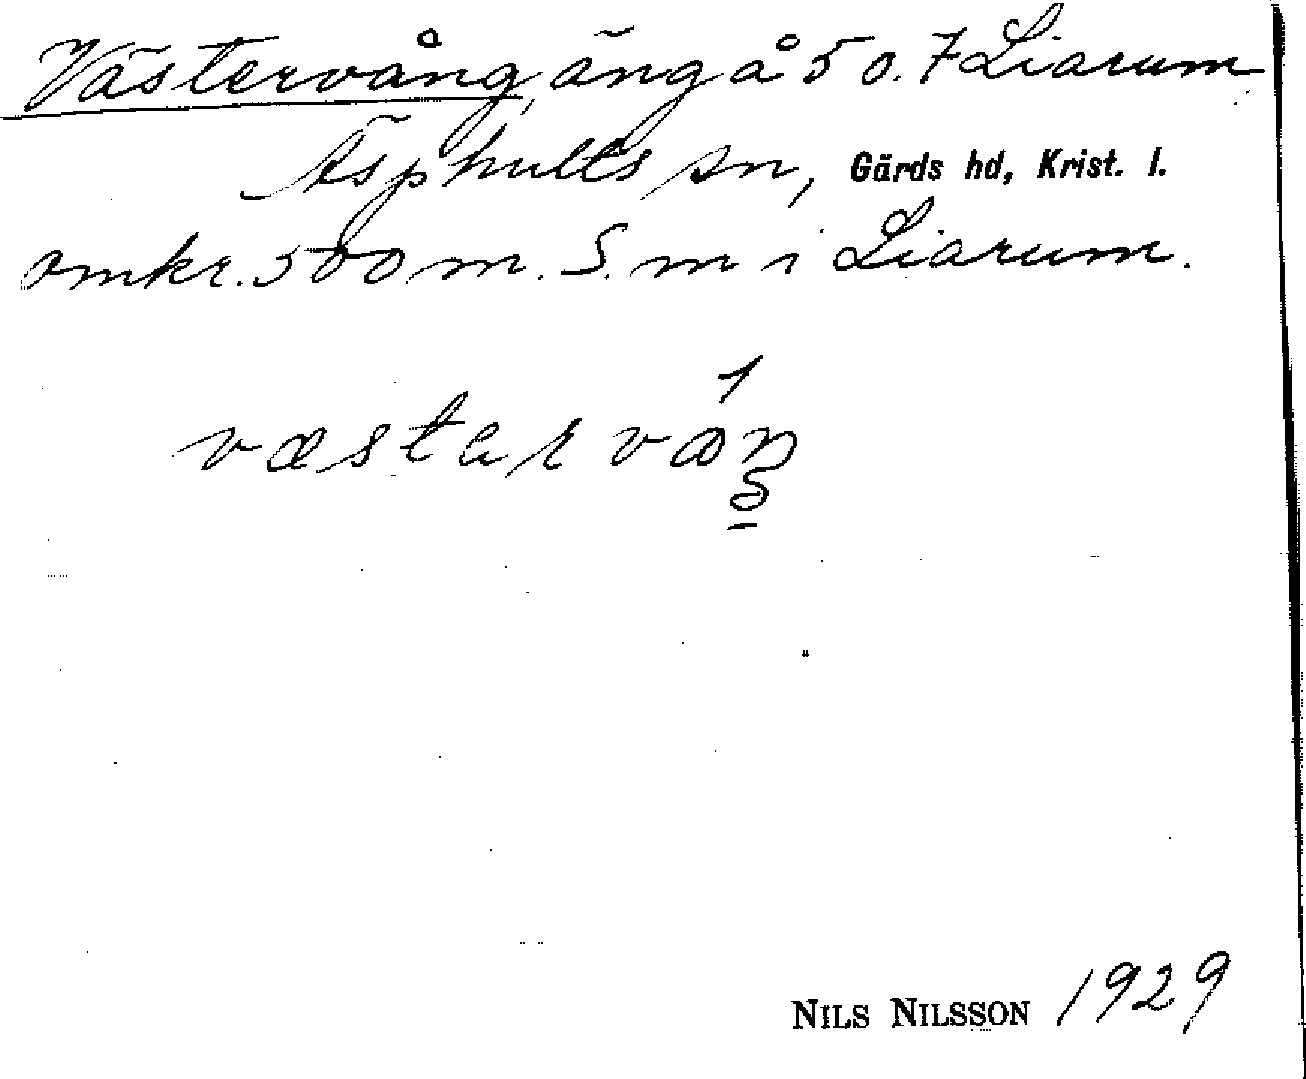 Västervång, äng å 5 o. 7 Liarum
Äsphults sn, Gärds hd, Krist. l.
omkr. 500 m. S. m i Liarum.
NILS NILSSON 1929